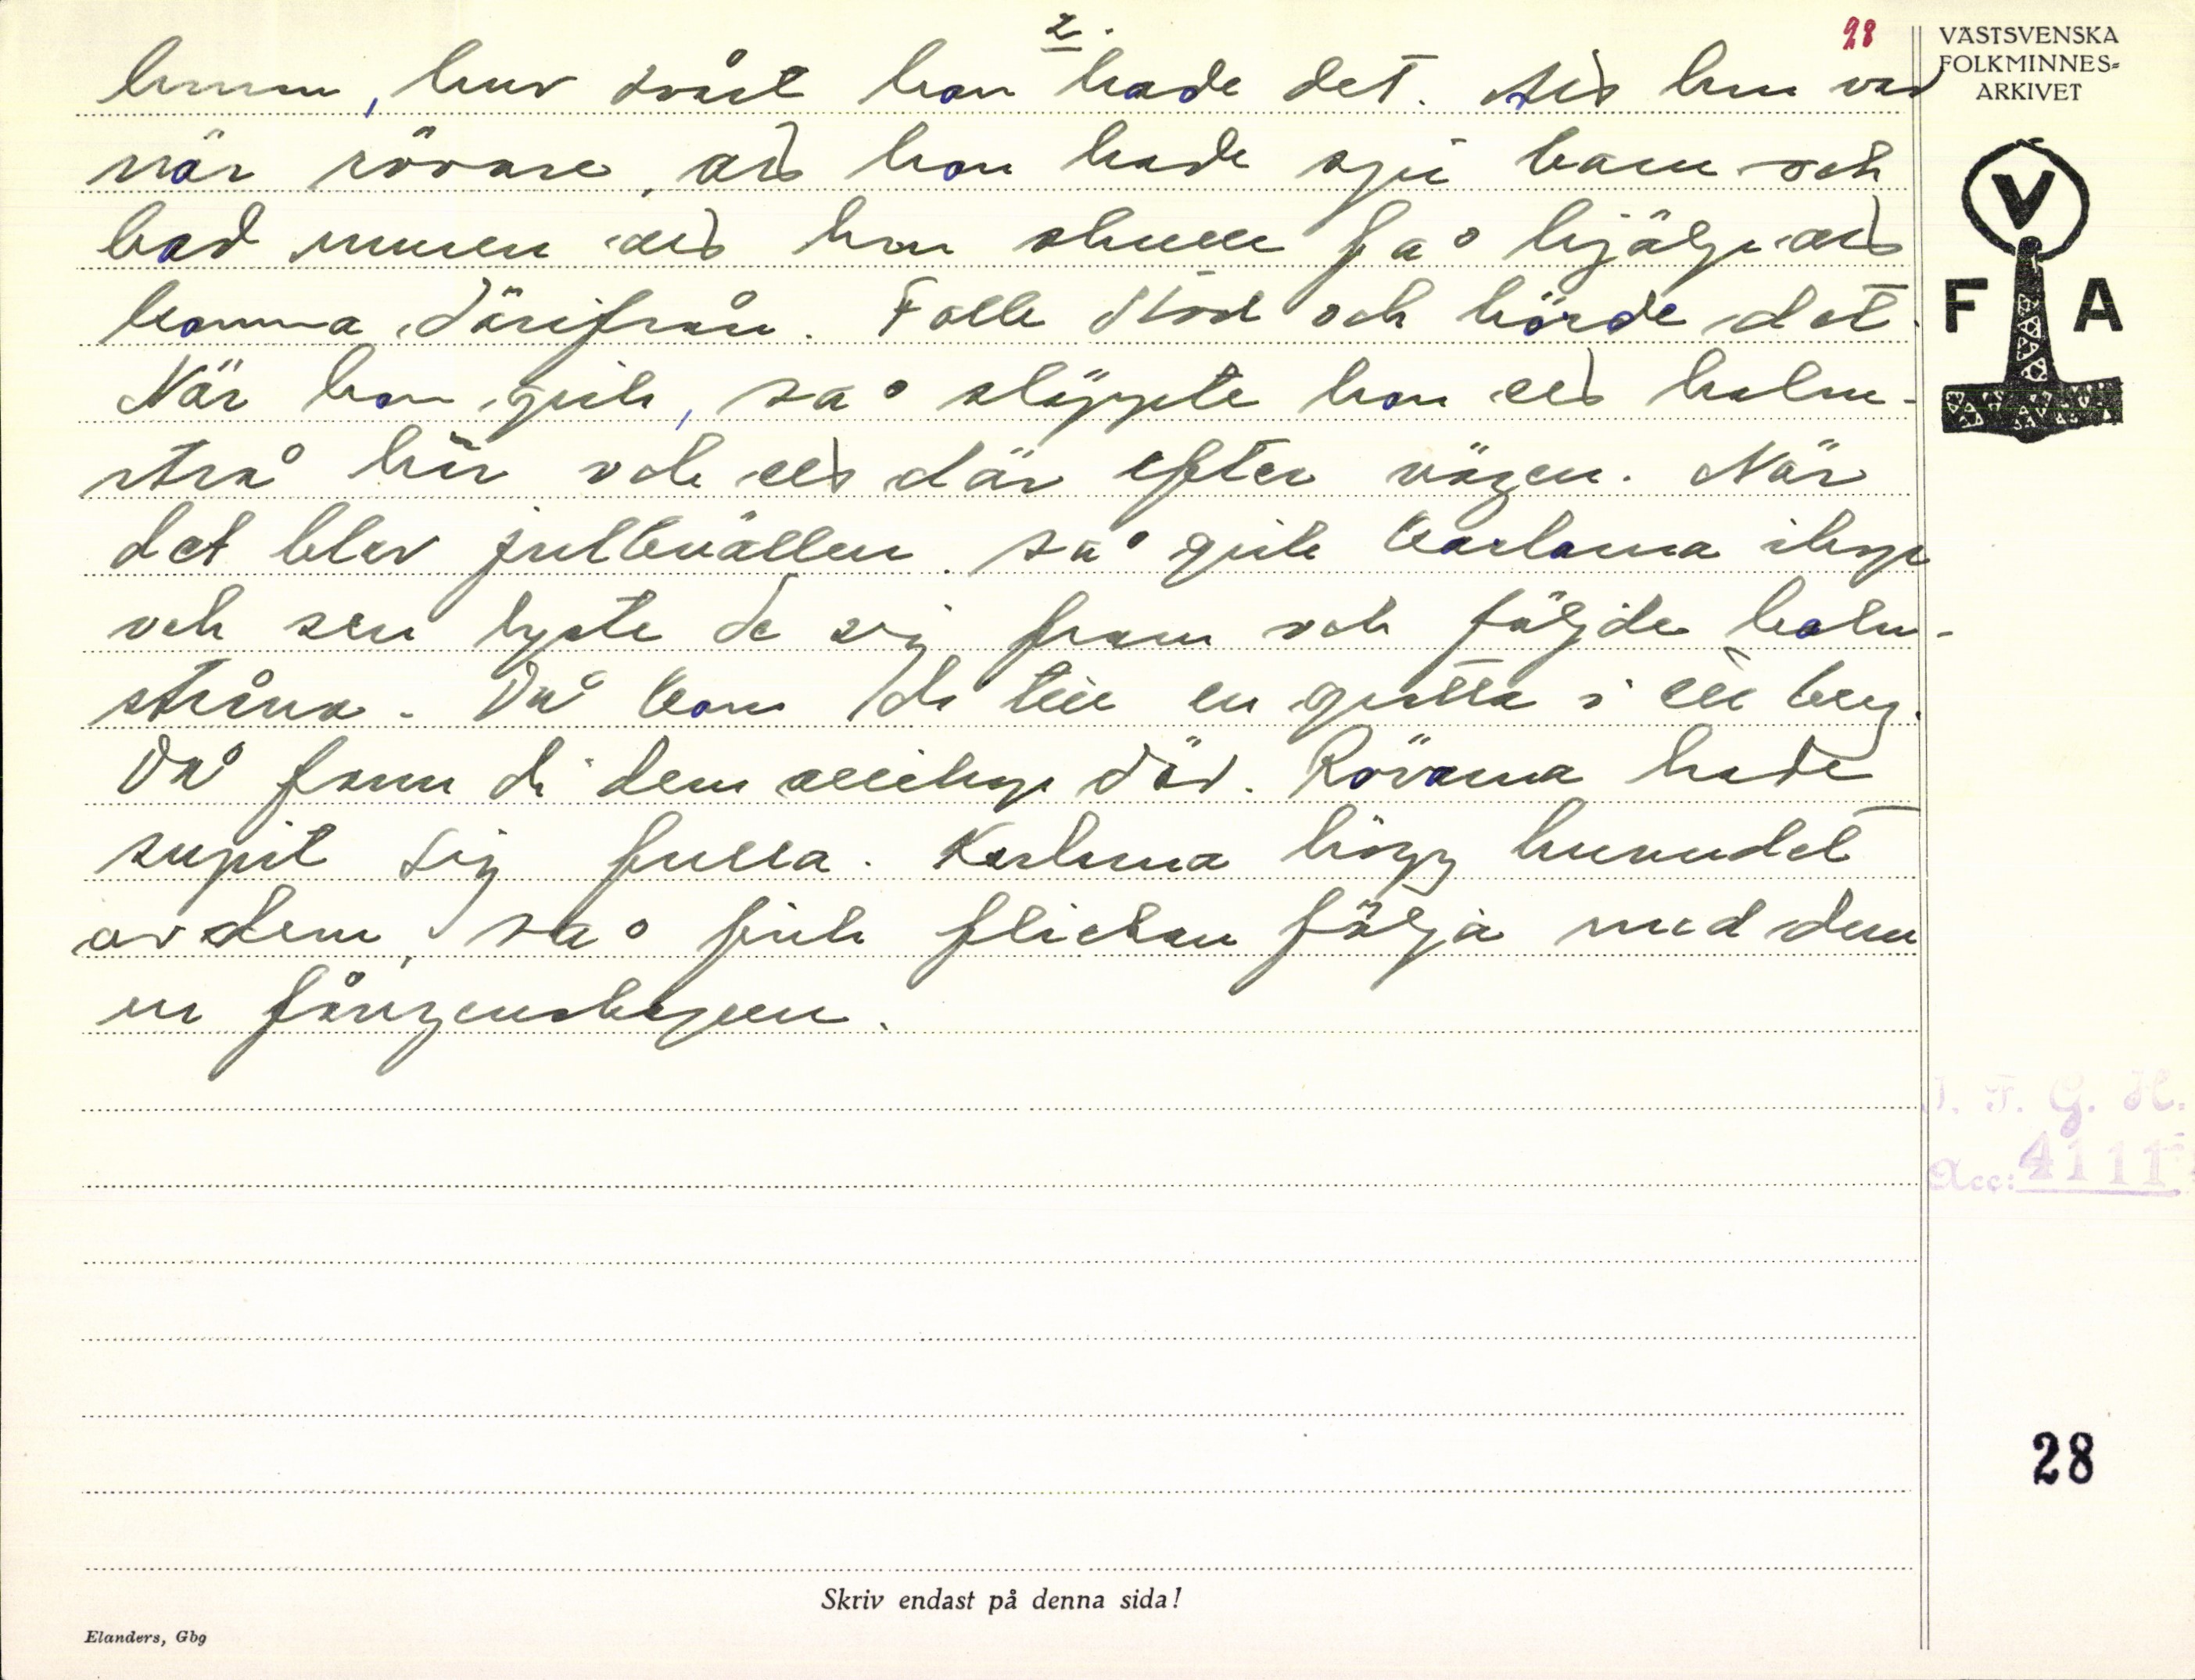 2.
28
honom, huv svårt hon hade det. At hon var
när rövare, att hon hade sju barn och
bad muren att hon skulle få hjälp att
komma därifrån. Folk stod och hörde det.
När hon gick, så släppte hon ett halm-
strå här och ett där efter vägen. När
det blev julkvällen, så gick karlarna ihop
och sen lyste de sig fram och följde halm-
stråna. Då kom di till en grotta i ett berg.
Då fann di dem allihop död. Rövarna hade
supit sig fulla. Karlarna högg huvudet
av dem, så fick flickan följa med dem
ur fångenskapen.
VÄSTSVENSKA
FOLKMINNES=
ARKIVET
V
F A
I. F. G. H.
Acc: 4111
28
Skriv endast på denna sida!
Elanders, Gbg